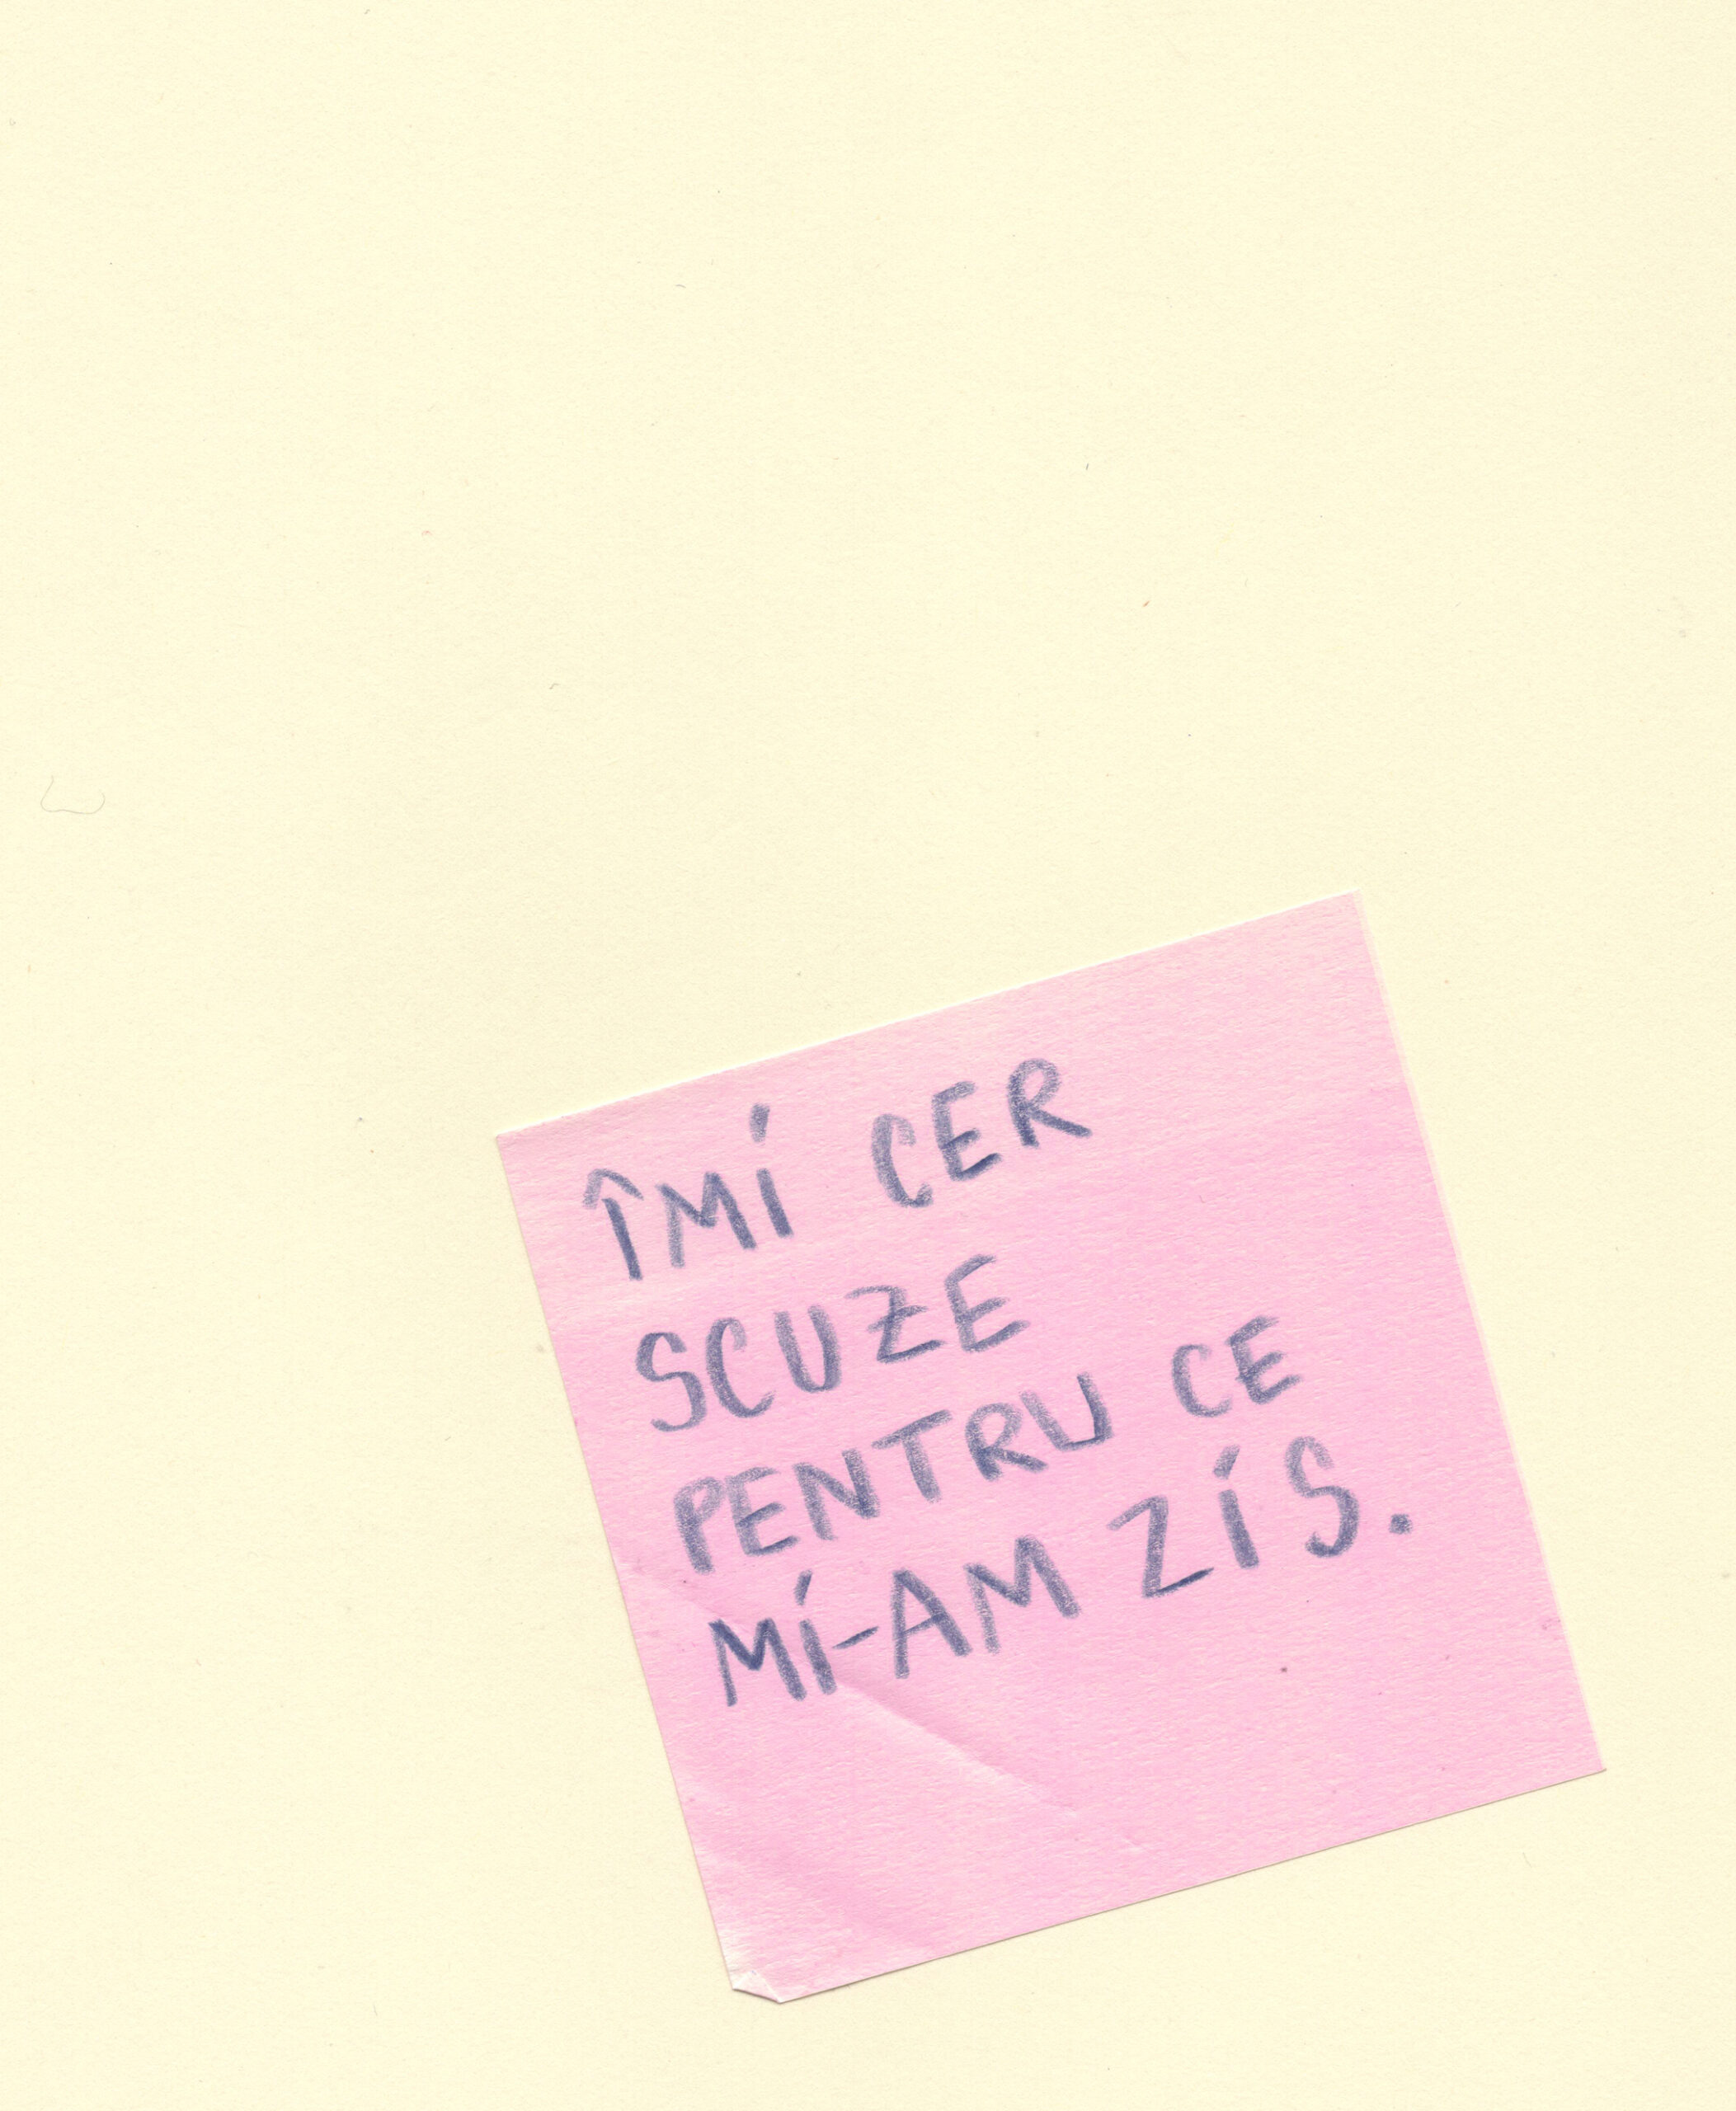 ÎMI CER
SCUZE
PENTRU CE
MI-AM ZIS.